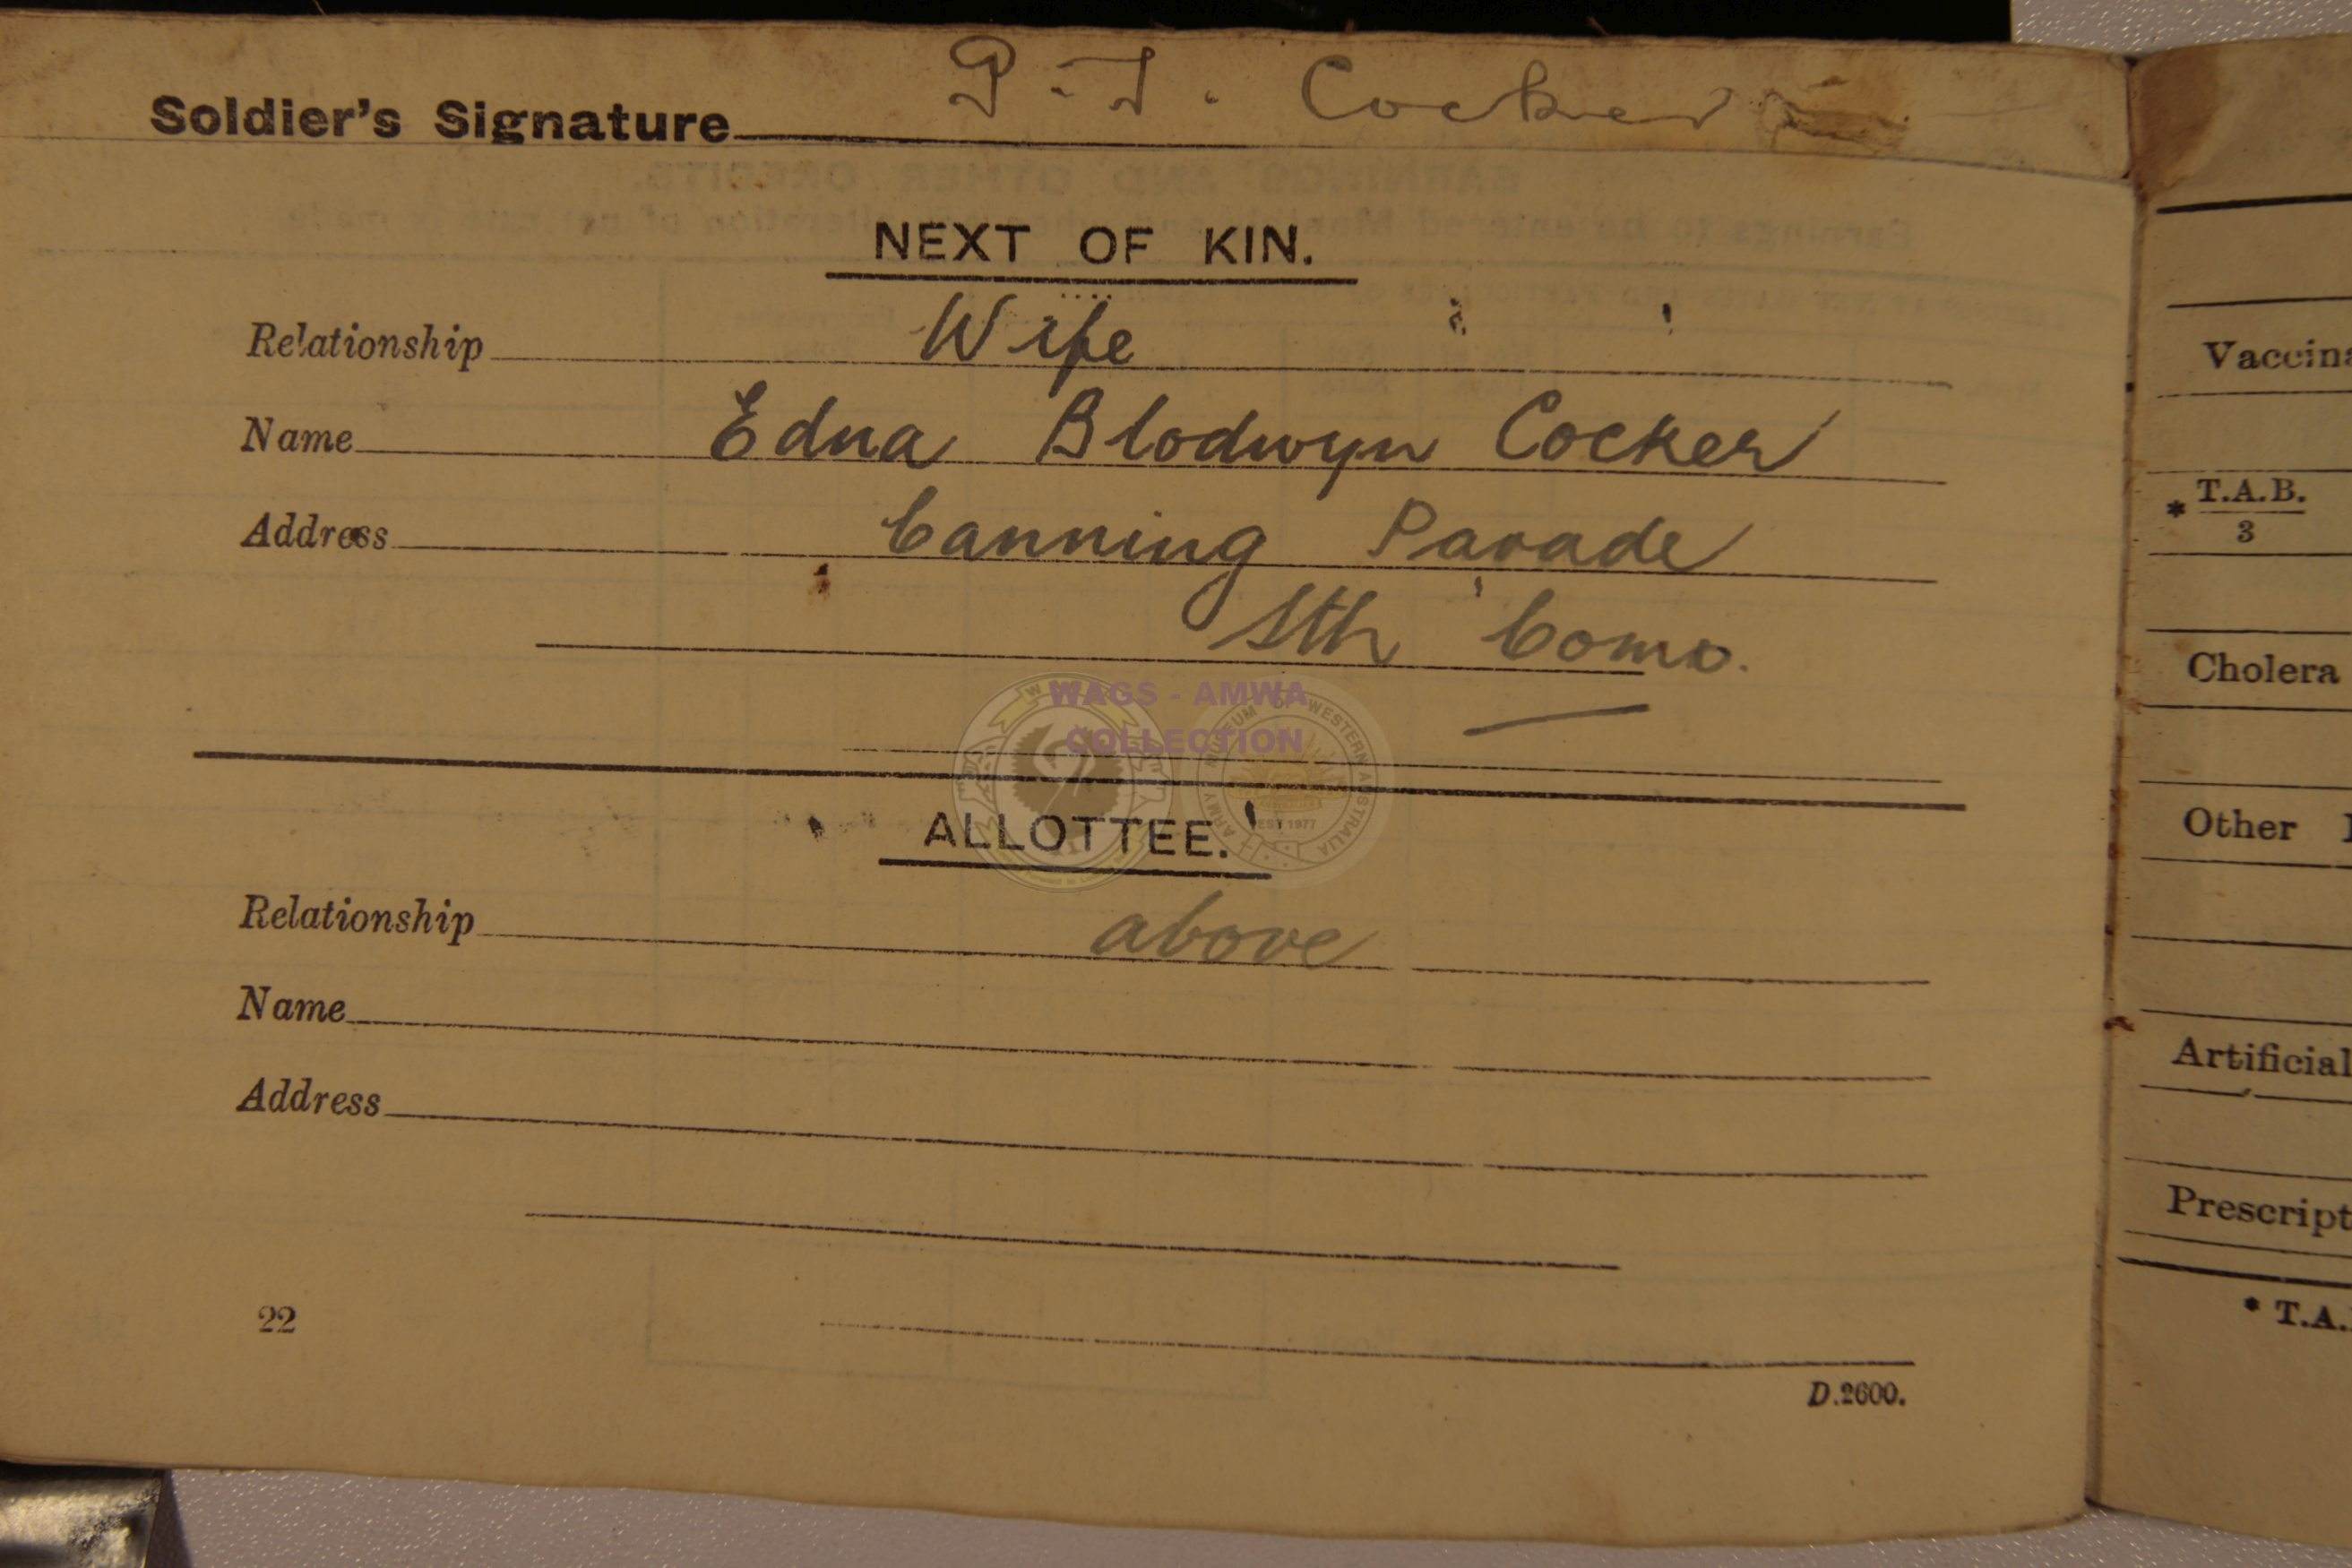 Soldier's Signature P. J. Cocker
NEXT OF KIN.
Relationship Wife
Name Edna Blodwyn Cocker
Address Canning Parade
Sth Como.
WAGS - AMWA
COLLECTION
ARMY MUSEUM OF WESTERN AUSTRALIA
EST 1977
ALLOTTEE.
Relationship above
Name
Address
22
D.2600.
Vaccina
* T.A.B.
3
Cholera
Other
Artificial
Prescript
* T.A.